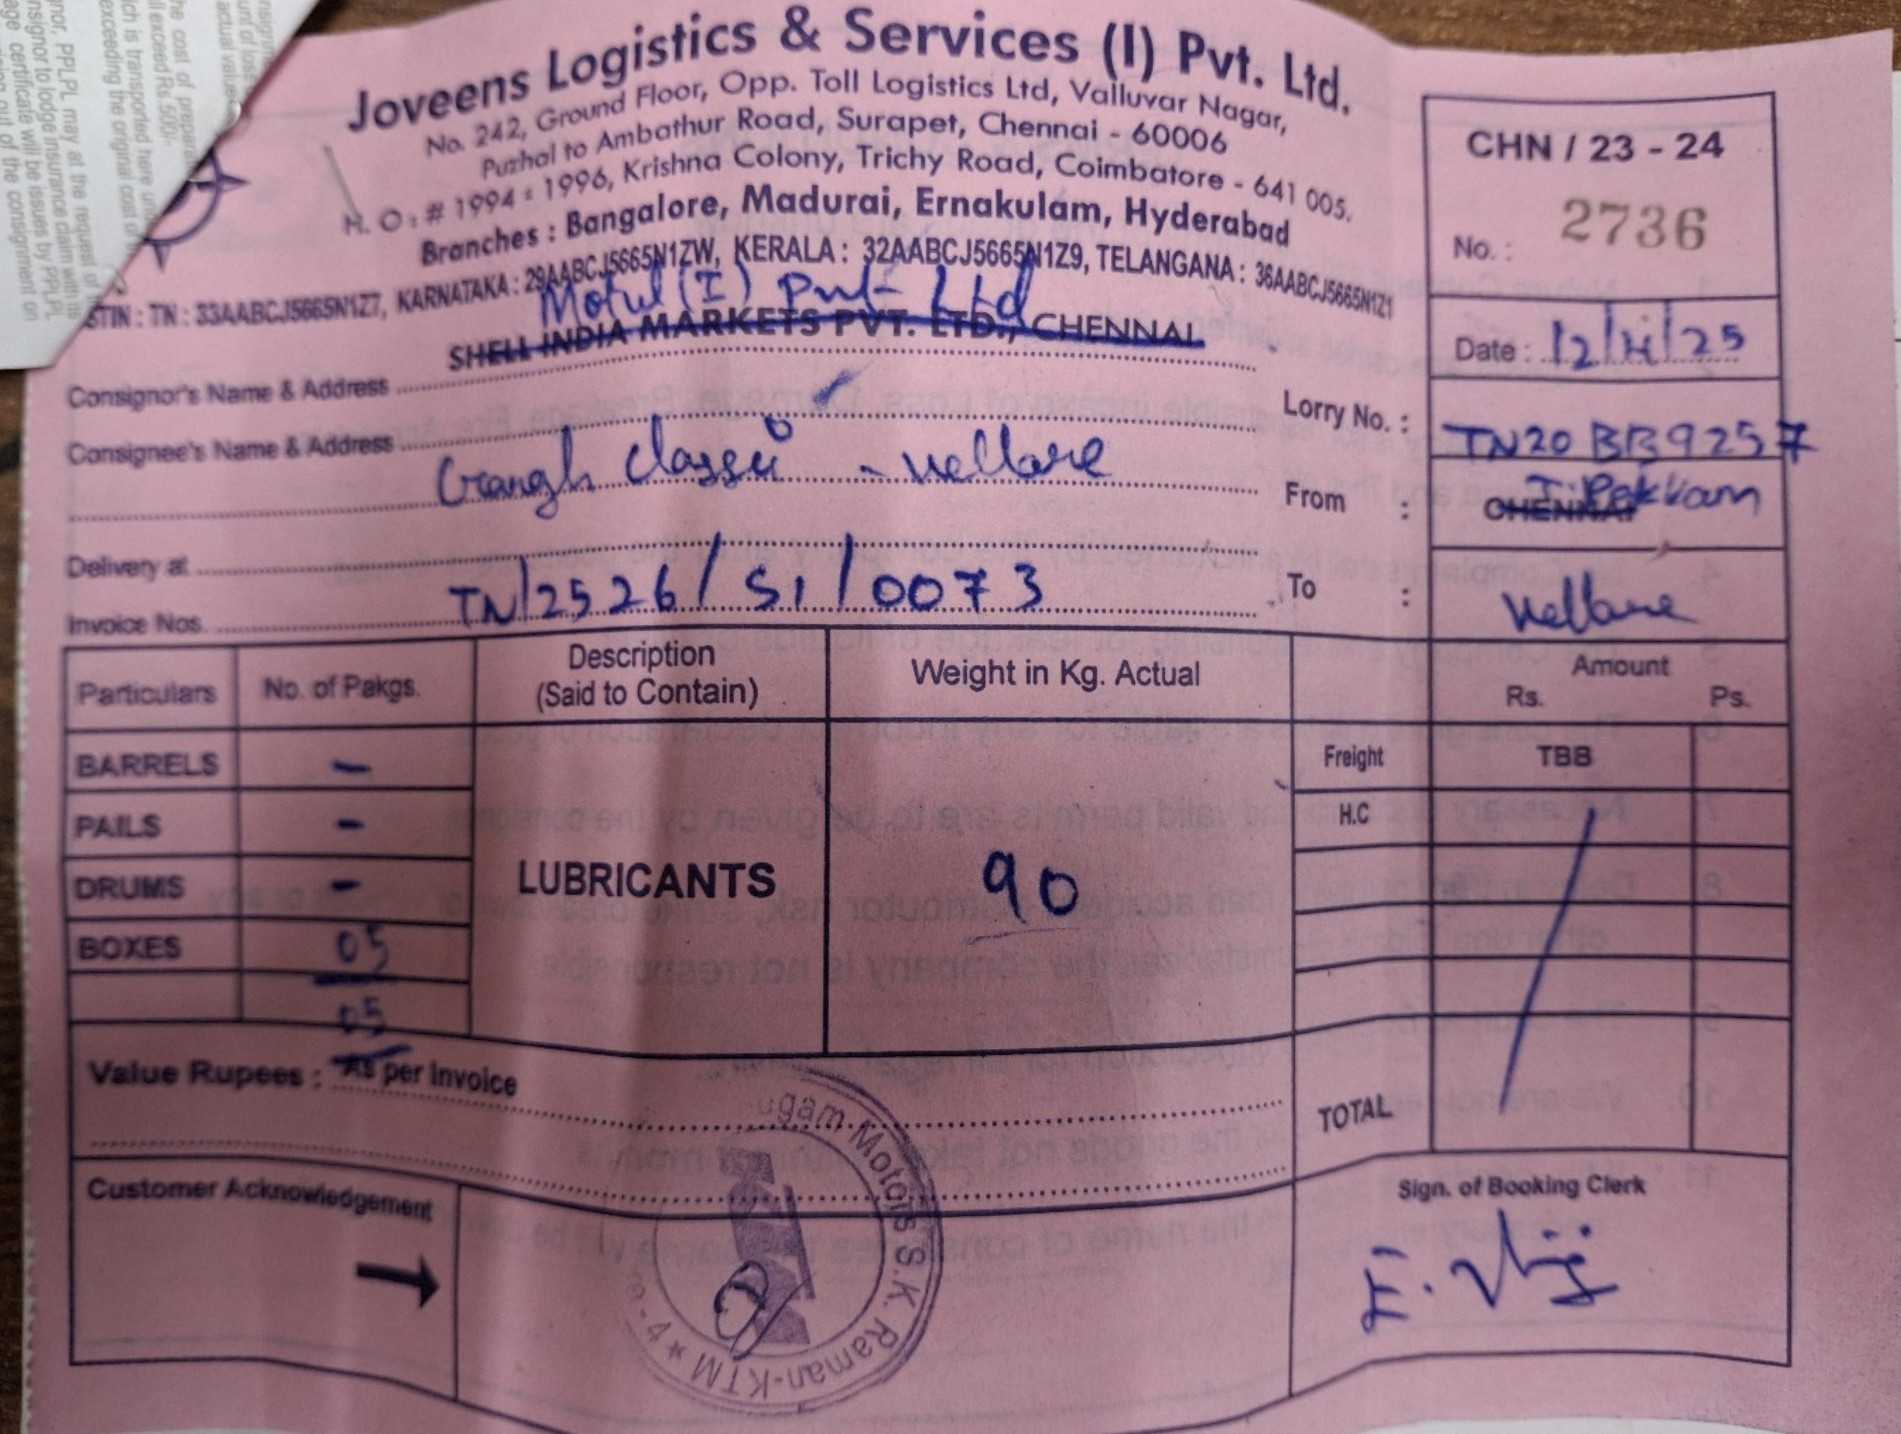 Joveens Logistics & Services (I) Pvt. Ltd.
No. 242, Ground Floor, Opp. Toll Logistics Ltd, Valluvar Nagar,
Puzhal to Ambathur Road, Surapet, Chennai - 60006
H. O : # 1994 - 1996, Krishna Colony, Trichy Road, Coimbatore - 641 005.
Branches : Bangalore, Madurai, Ernakulam, Hyderabad
STIN : TN : 33AABCJ5665N1Z7, KARNATAKA : 29AABCJ5665N1ZW, KERALA : 32AABCJ5665N1Z9, TELANGANA : 36AABCJ5665N1Z1
CHN / 23 - 24
No. : 2736
Date : 12/11/25
Motul (I) Pvt Ltd
SHELL INDIA MARKETS PVT. LTD., CHENNAI
Consignor's Name & Address
Consignee's Name & Address
classic - vellore
Lorry No. : TN20 BB9257
From : CHENNAI
Delivery at
To : vellore
Invoice Nos. TN/2526/SI/0073
Particulars No. of Pakgs. Description (Said to Contain) Weight in Kg. Actual Amount Rs. Ps.
BARRELS - Freight TBB
PAILS - H.C
DRUMS - LUBRICANTS 90
BOXES 05
05
Value Rupees : As per Invoice
TOTAL
Customer Acknowledgement
ugam Motors S.K. Raman-KTM
Sign. of Booking Clerk
nor, PPLPL may at the request of
nsignor to lodge insurance claim with its
age certificate will be issues by PPLPL
out of the consignment on
the cost of
ll exceed Rs. 500/-
ch is transported here
exceeding the original cost of
actual value